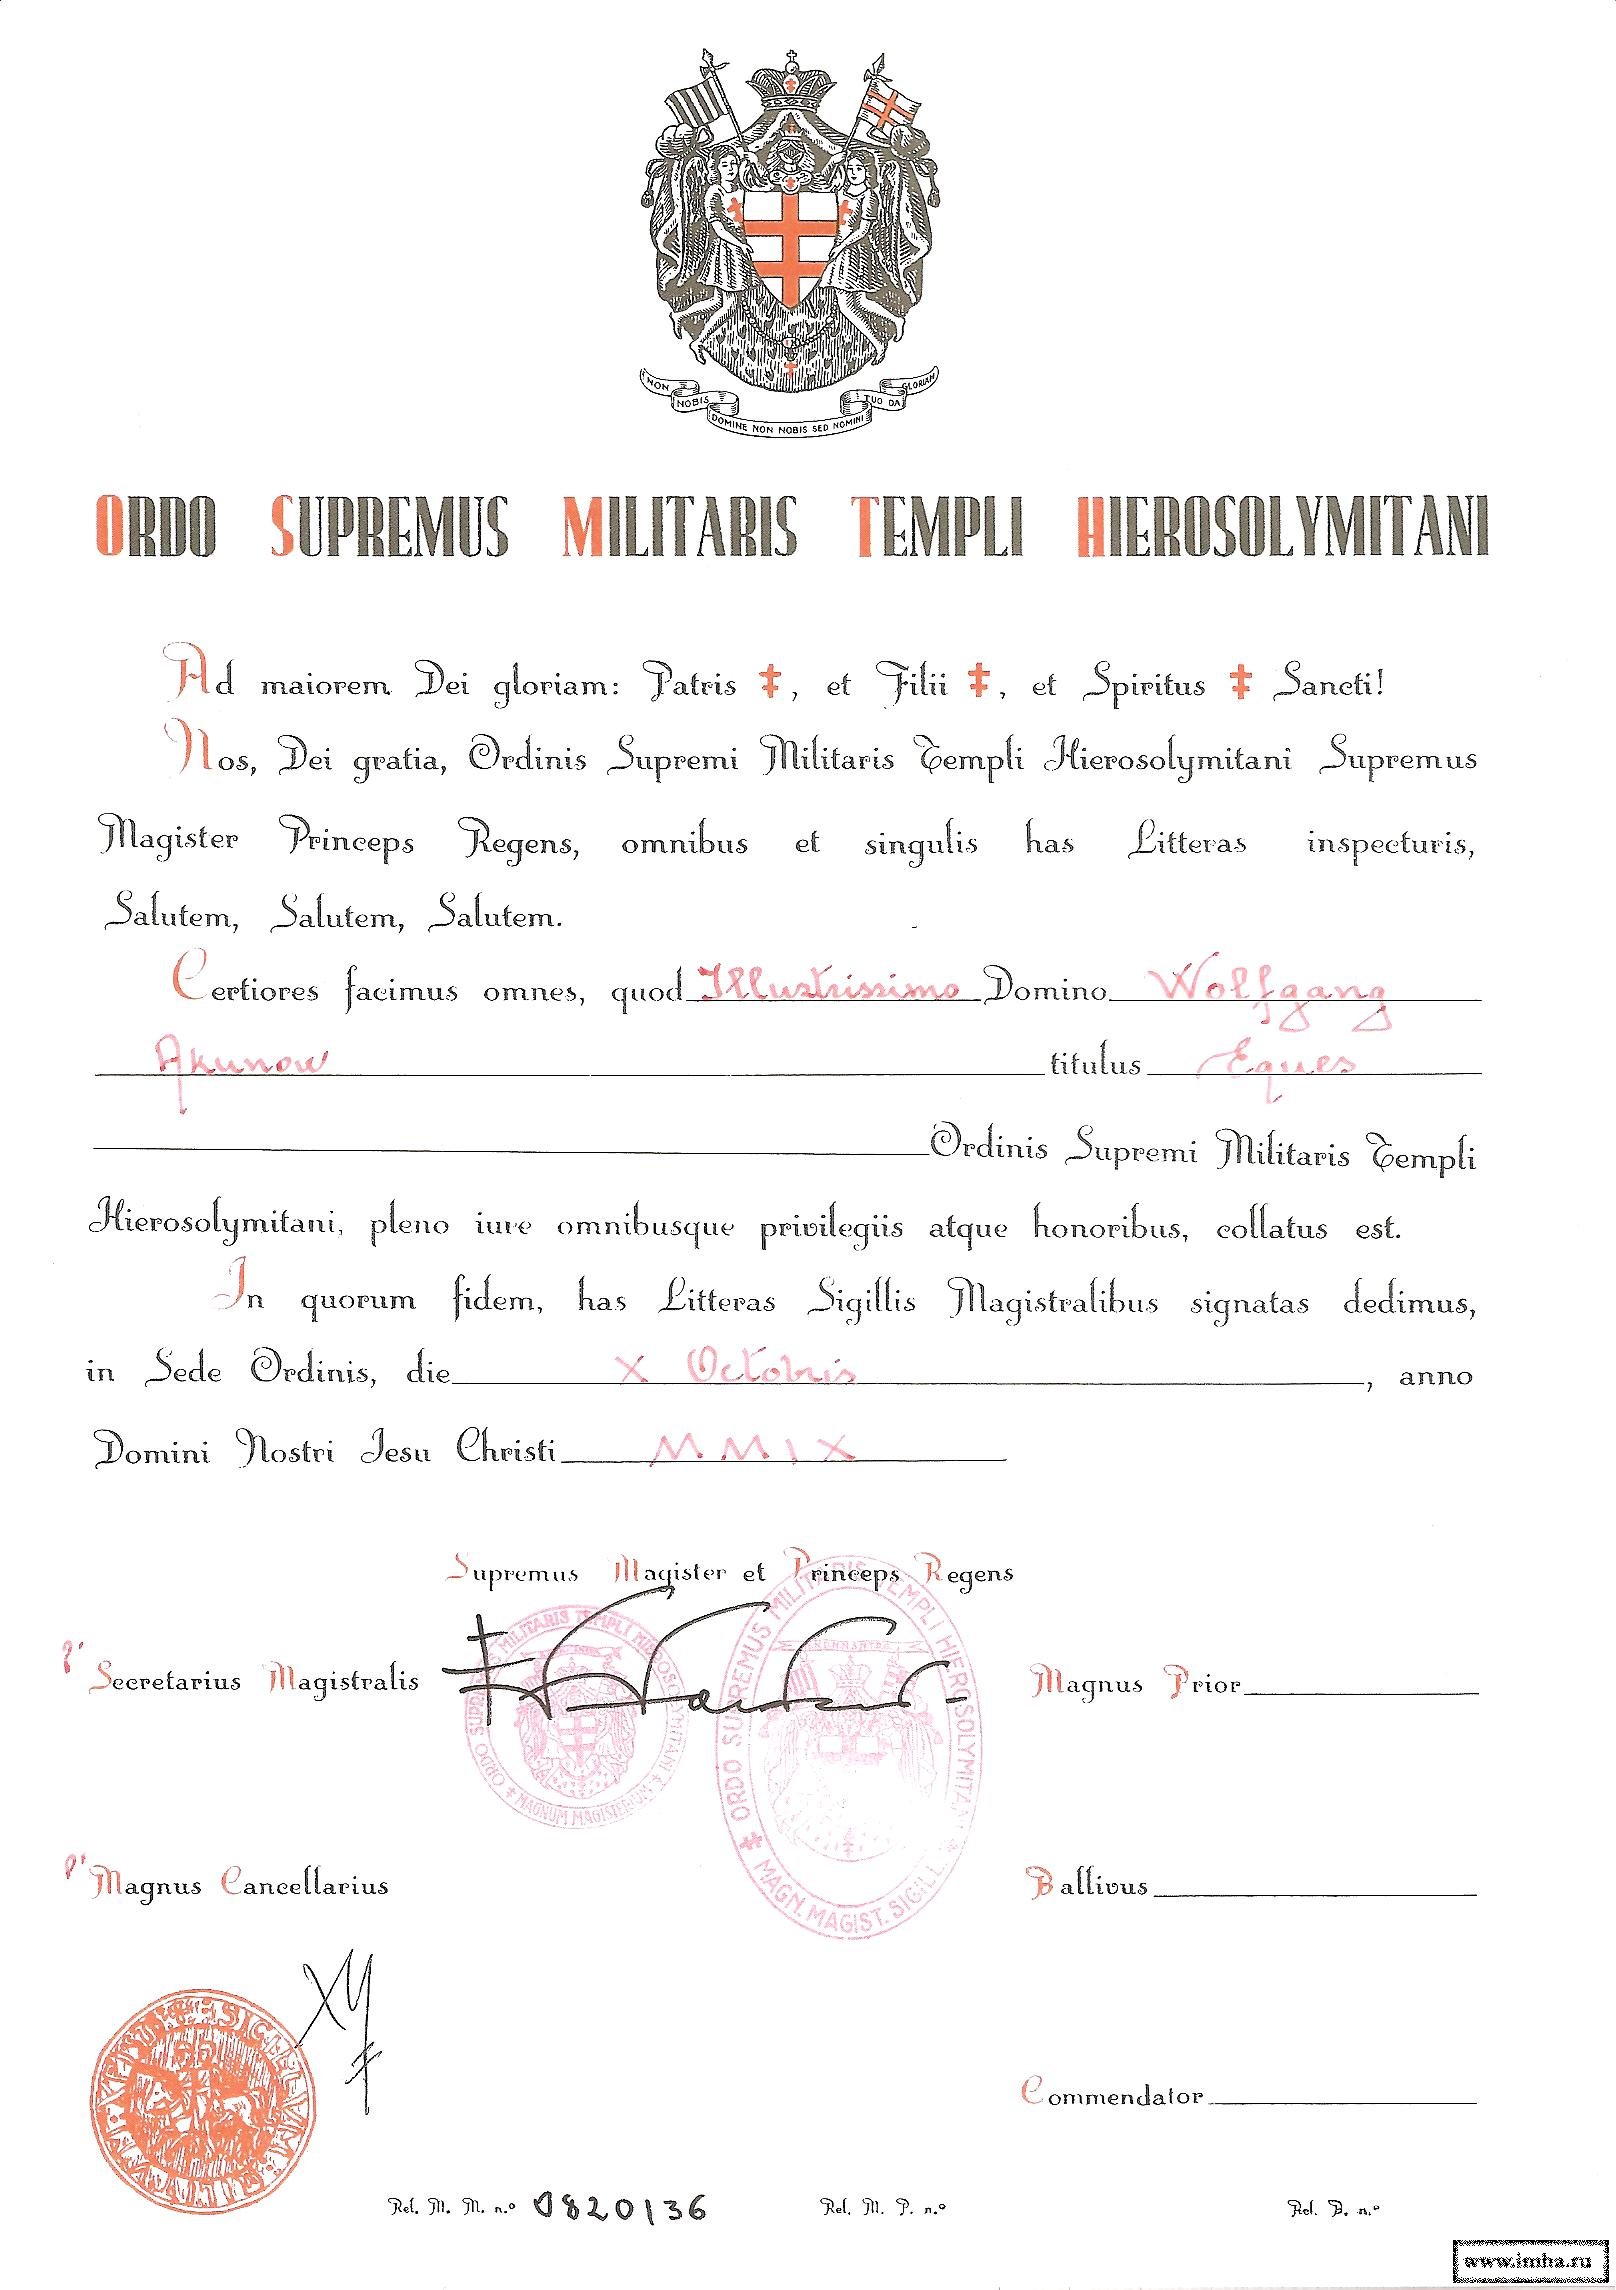 NON NOBIS DOMINE NON NOBIS SED NOMINI TUO DA GLORIAM
ORDO SUPREMUS MILITARIS TEMPLI HIEROSOLYMITANI
Ad maiorem Dei gloriam: Patris ‡, et Filii ‡, et Spiritus ‡ Sancti!
Nos, Dei gratia, Ordinis Supremi Militaris Templi Hierosolymitani Supremus
Magister Princeps Regens, omnibus et singulis has Litteras inspecturis,
Salutem, Salutem, Salutem.
Certiores facimus omnes, quod Illustrissimo Domino Wolfgang
Akunow titulus Eques
Ordinis Supremi Militaris Templi
Hierosolymitani, pleno iure omnibusque privilegiis atque honoribus, collatus est.
In quorum fidem, has Litteras Sigillis Magistralibus signatas dedimus,
in Sede Ordinis, die X Octobris, anno
Domini Nostri Jesu Christi MMIX
Supremus Magister et Princeps Regens
Secretarius Magistralis
Magnus Prior
ORDO SUPREMUS MILITARIS TEMPLI HIEROSOLYMITANI ‡ MAGNUM MAGISTERIUM ‡
‡ ORDO SUPREMUS MILITARIS TEMPLI HIEROSOLYMITANI ‡ MAGN. MAGIST. SIGILL.
Magnus Cancellarius
Ballivus
Commendator
Ref. M. M. n.º 0820136
Ref. M. P. n.º
Ref. B. n.º
www.imha.ru